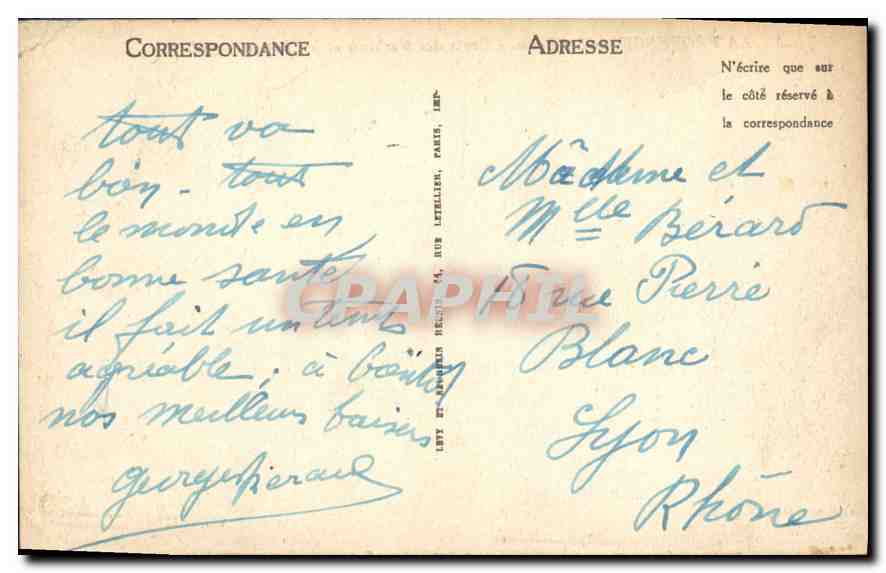 CORRESPONDANCE
tout va
bien - tout
le monde en
bonne santé
il fait un temps
agréable, à bientôt
nos meilleurs baisers
Georges Berard
LEVY ET NEURDEIN REUNIS, 44, RUE LETELLIER, PARIS, IMP.
ADRESSE
N'écrire que sur
le côté réservé à
la correspondance
Madame et
Mlle Bérard
15 rue Pierre
Blanc
Lyon
Rhône
CPAPHIL